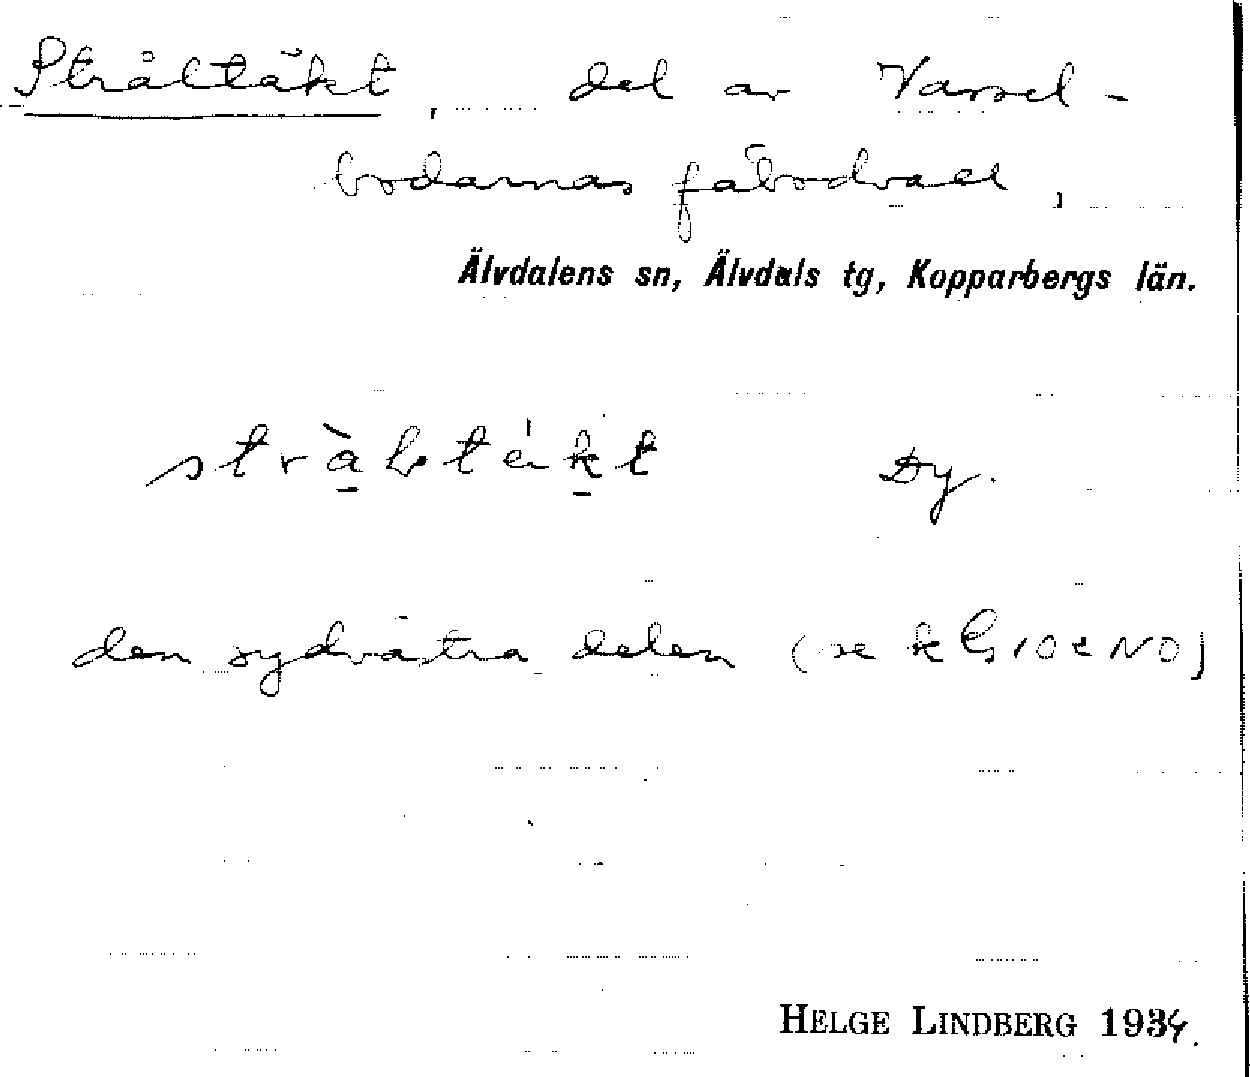 Stråltäkt, del av Varsel-
bodarnas fäbodvall,
Älvdalens sn, Älvdals tg, Kopparbergs län.
Dy.
den sydvästra delen (se k G 10 e NO)
HELGE LINDBERG 1934.